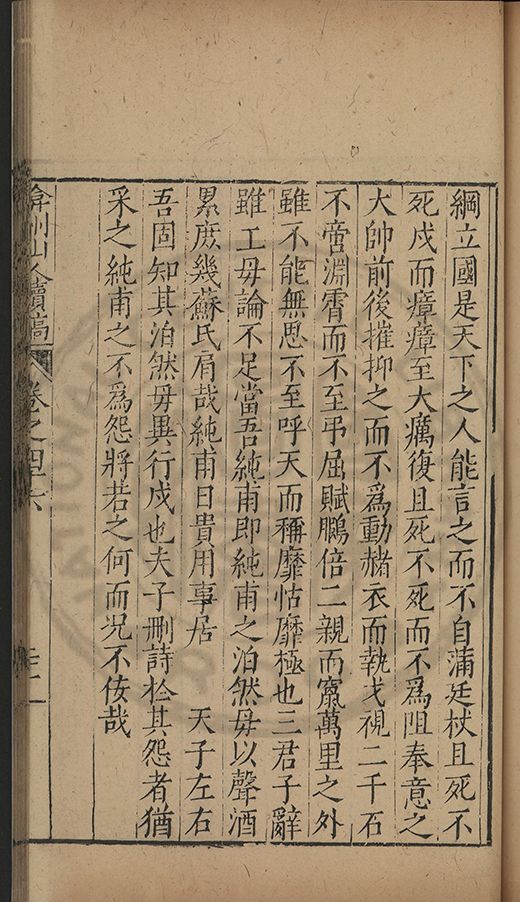 綱立國是天下之人能言之而不自蒲廷杖且死不
死戍而瘴瘴至大癘復且死不死而不為阻奉意之
大帥前後摧抑之而不為動赭衣而執戈視二千石
不啻淵霄而不至弔屈賦鵩倍二親而竄萬里之外
雖不能無思不至呼天而稱靡怙靡極也三君子辭
雖工毋論不足當吾純甫即純甫之泊然毋以聲酒
累庶幾蘇氏肩哉純甫日貴用事居 天子左右
吾固知其泊然毋異行戍也夫子刪詩於其怨者猶
采之純甫之不為怨將若之何而況不佞哉
弇州山人續稿 卷之四十六